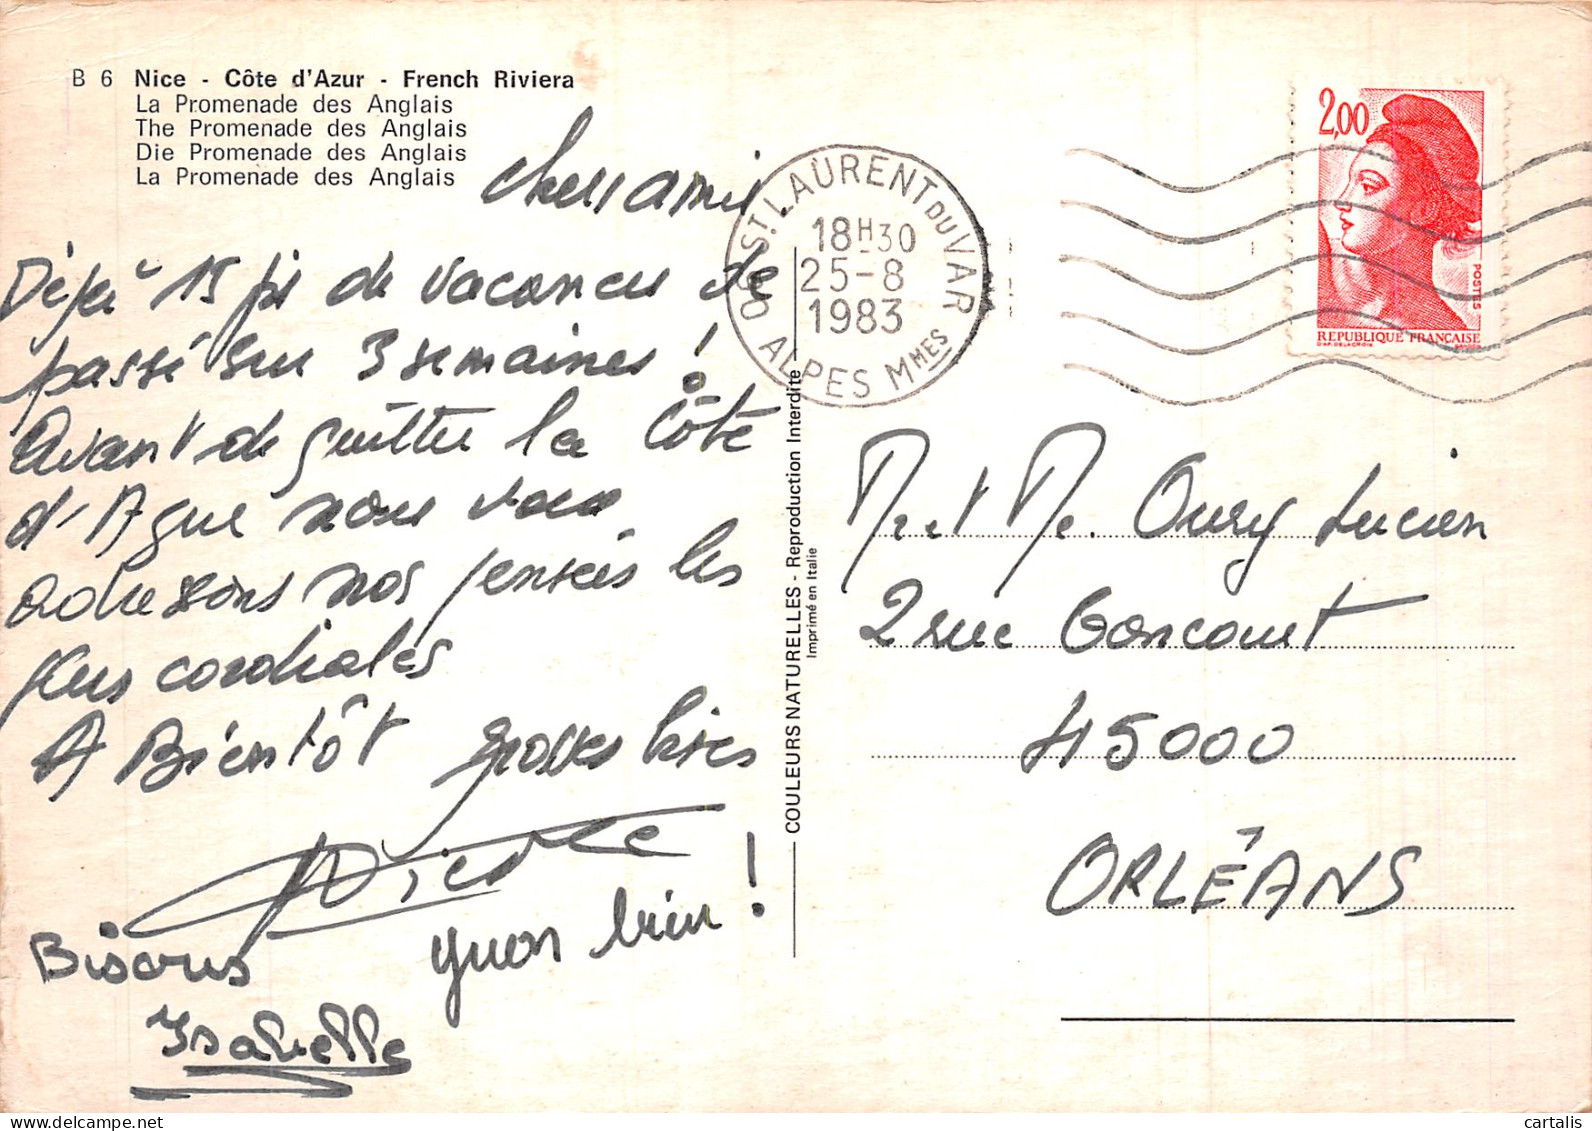 B 6 Nice - Côte d'Azur - French Riviera
La Promenade des Anglais
The Promenade des Anglais
Die Promenade des Anglais
La Promenade des Anglais
Chers amis,
Déjà 15 jrs de vacances de
passé sur 3 semaines !
Avant de quitter la Côte
d'Azur nous vous
adressons nos pensées les
plus cordiales
A Bientôt grosses bises
Nicole
Yvon
!
Bisous
Isabelle
COULEURS NATURELLES - Reproduction Interdite
Imprimé en Italie
06 ST LAURENT DU VAR
18H30
25-8
1983
ALPES MMES
2,00
POSTES
REPUBLIQUE FRANCAISE
D'AP. DELACROIX
Mr et Me. Oury Lucien
2 rue Goncourt
45000
ORLÉANS
cartalis